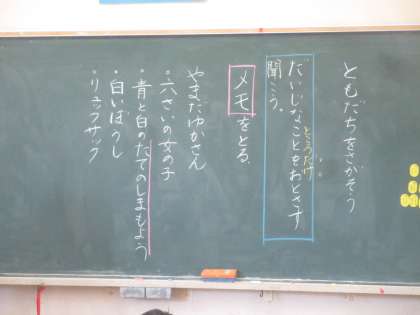 ともだちをさがそう
だいじなことをおとさず
とくだけ
聞こう。
メモをとる。
やまだゆかさん
・六さいの女の子
・青と白のたてのしまもよう
・白いぼうし
・リュックサック